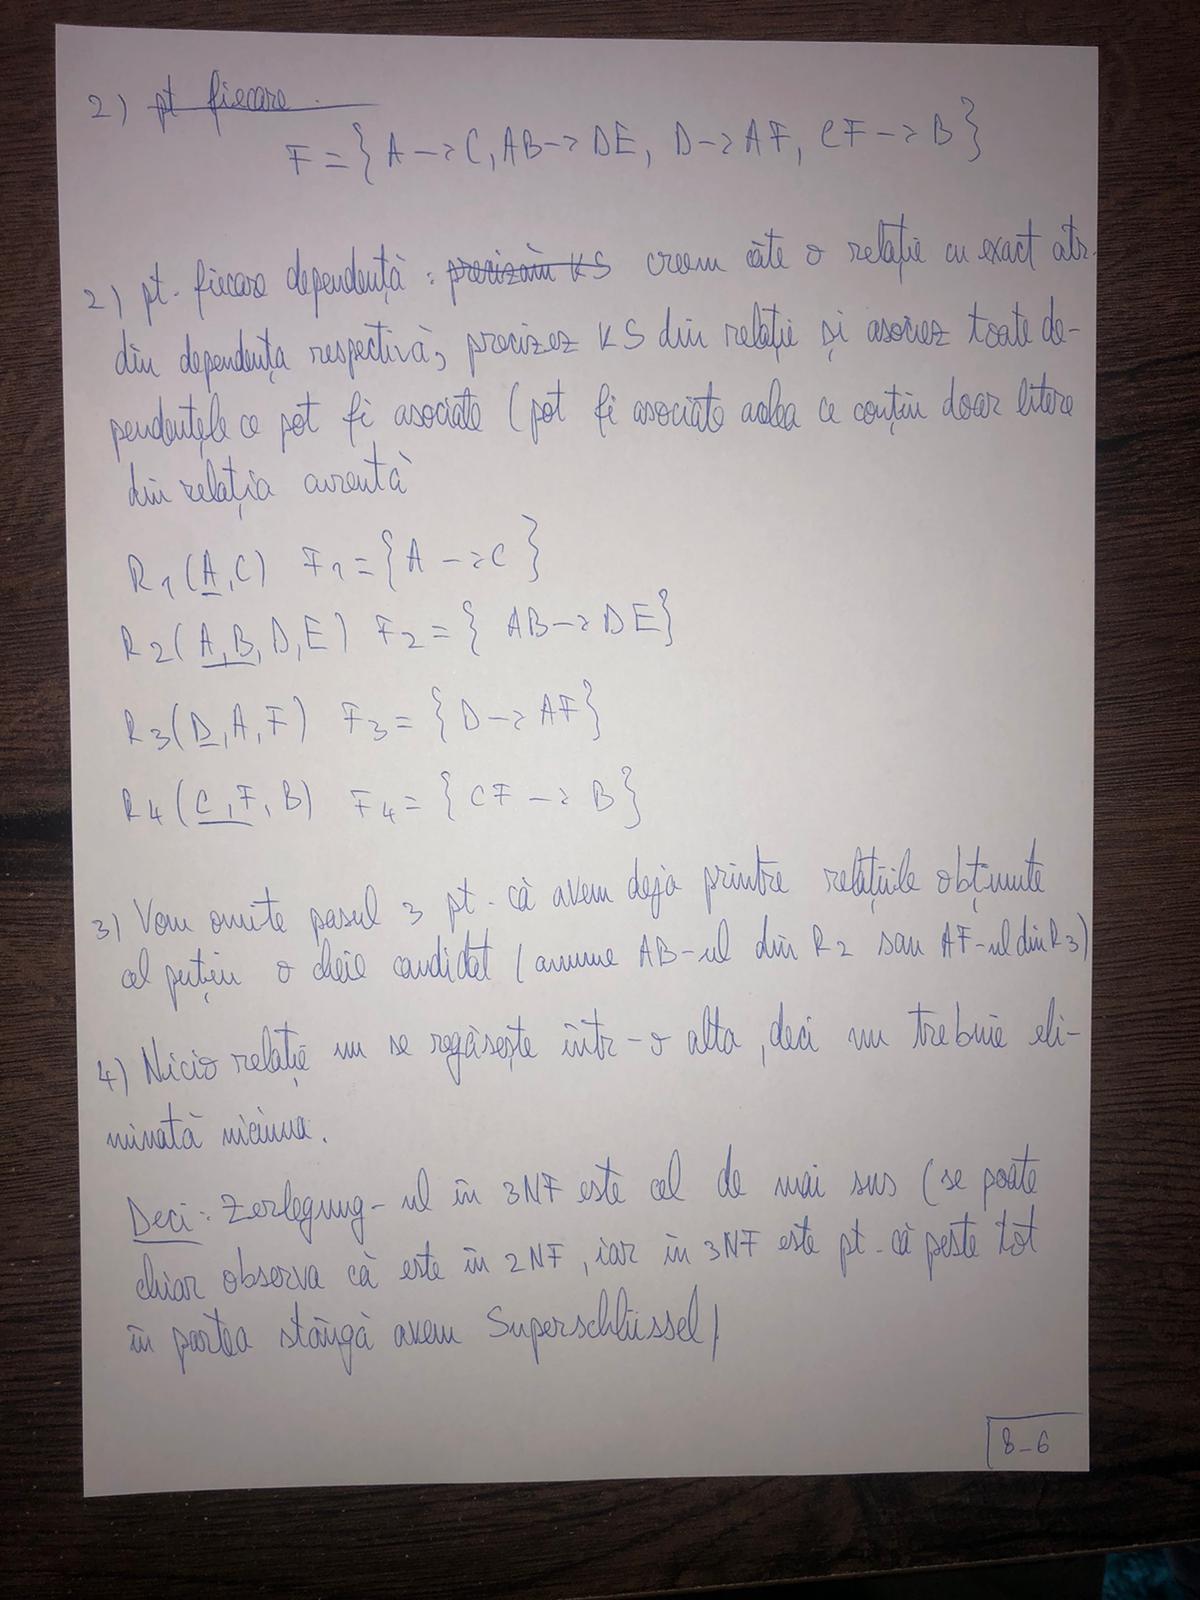 2) pt fiecare
F = { A -> C, AB -> DE, D -> AF, CF -> B }
2) pt. fiecare dependență: precizăm KS creem câte o relație cu exact atr.
din dependența respectivă, precizez KS din relație și asociez toate de-
pendențele ce pot fi asociate (pot fi asociate acelea ce conțin doar litere
din relația curentă
R1 (A, C) F1 = { A -> C }
R2 (A, B, D, E) F2 = { AB -> DE }
R3 (D, A, F) F3 = { D -> AF }
R4 (C, F, B) F4 = { CF -> B }
3) Vom omite pasul 3 pt. că avem deja printre relațiile obținute
cel puțin o cheie candidat (anume AB-ul din R2 sau AF-ul din R3)
4) Nicio relație nu se regăsește într-o alta, deci nu trebuie eli-
minată niciuna.
Deci: Zerlegung-ul în 3NF este cel de mai sus (se poate
chiar observa că este în 2NF, iar în 3NF este pt. că peste tot
în partea stângă avem Superschlüssel)
8-6